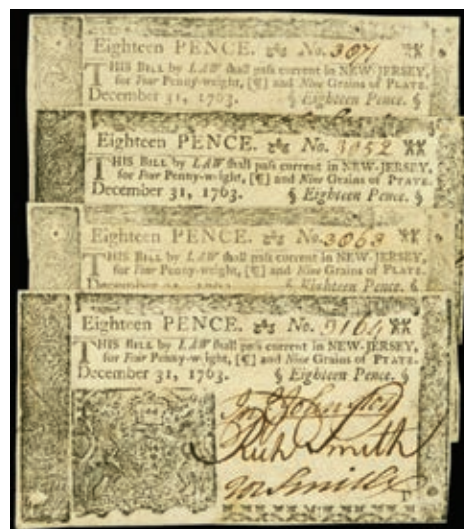 Eighteen PENCE. No. 3071
THIS BILL by LAW shall paſs current in NEW-JERSEY,
for Four Penny-weight, [¶] and Nine Grains of PLATE.
December 31, 1763. § Eighteen Pence. §
Eighteen PENCE. No. 3052
THIS BILL by LAW ſhall paſs current in NEW-JERSEY,
for Four Penny-weight, [¶] and Nine Grains of PLATE.
December 31, 1763. § Eighteen Pence. §
Eighteen PENCE. No. 3063
THIS BILL by LAW ſhall paſs current in NEW-JERSEY,
for Four Penny-weight, [¶] and Nine Grains of PLATE.
December 31, 1763. § Eighteen Pence. §
Eighteen PENCE. No. 9164
THIS BILL by LAW ſhall paſs current in NEW-JERSEY,
for Four Penny-weight, [¶] and Nine Grains of PLATE.
December 31, 1763. § Eighteen Pence. §
Johnston
Rich Smith
Smith